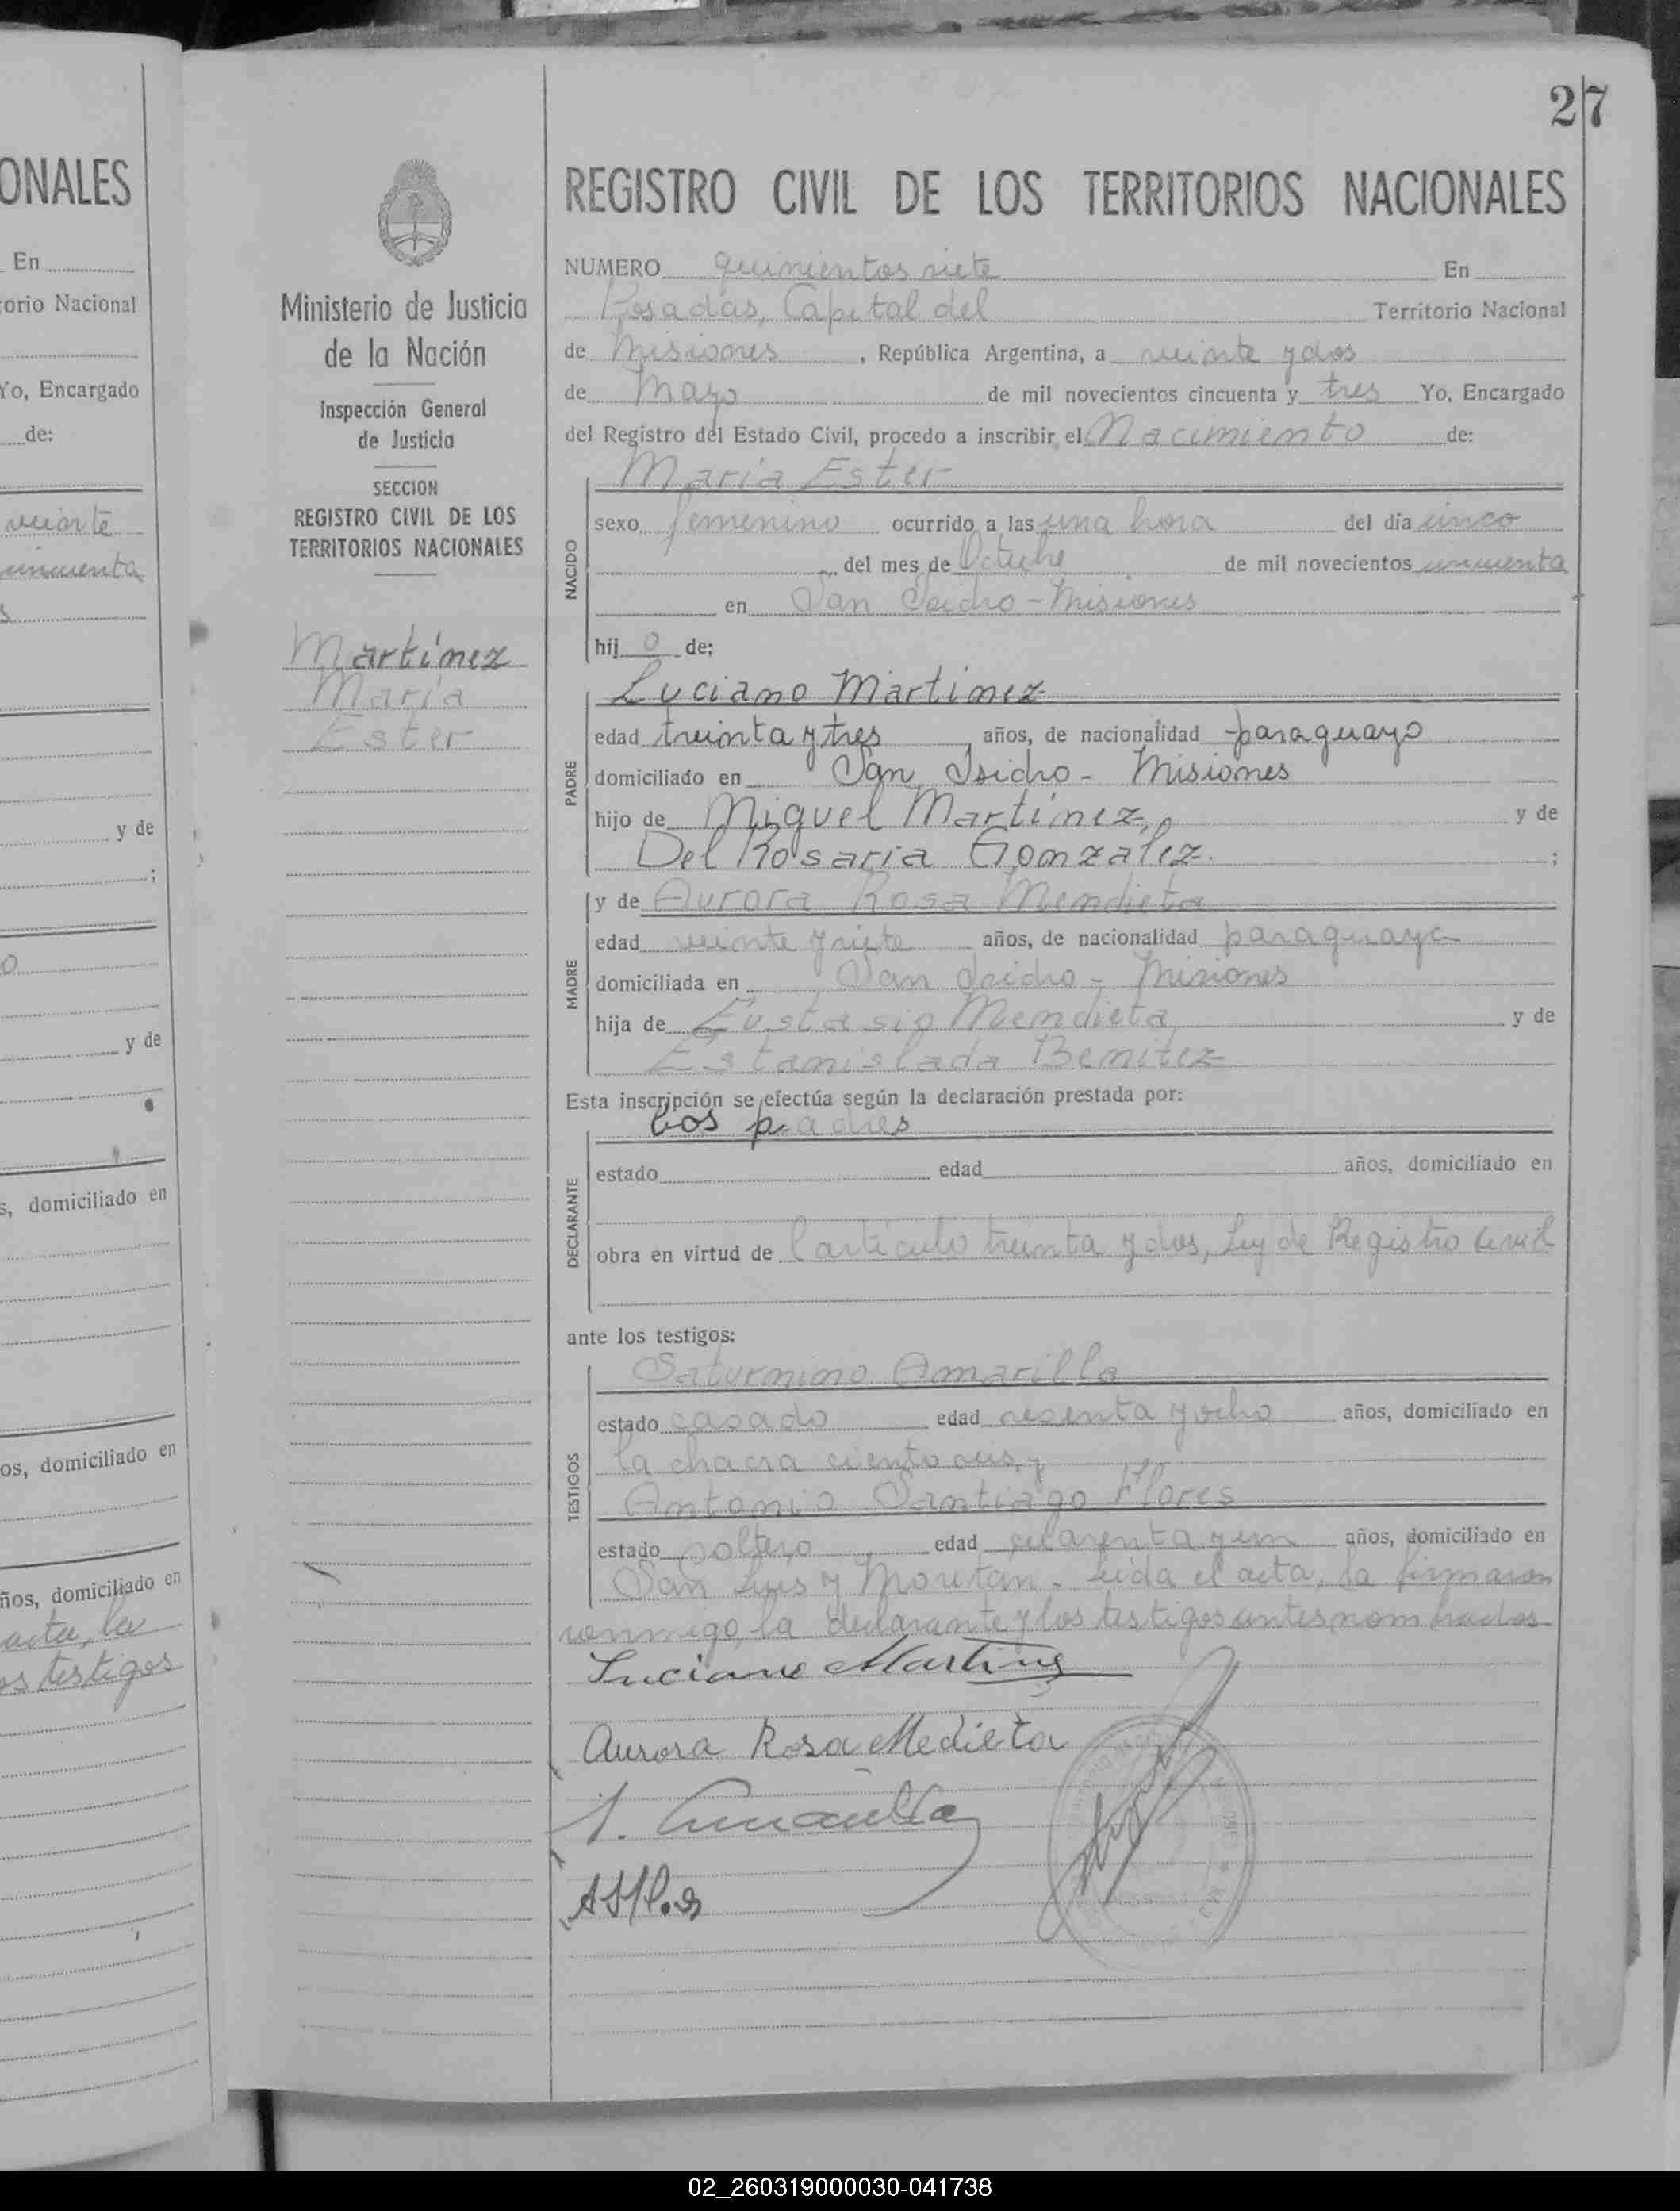 27
ONALES
En
torio Nacional
Yo, Encargado
de:
veinte
cincuenta
y de
o
y de
s, domiciliado en
os, domiciliado en
ños, domiciliado en
acta, la
os testigos
Ministerio de Justicia
de la Nación
Inspección General
de Justicia
SECCION
REGISTRO CIVIL DE LOS
TERRITORIOS NACIONALES
Martínez
María
Ester
REGISTRO CIVIL DE LOS TERRITORIOS NACIONALES
NUMERO quinientos siete En
Posadas, Capital del Territorio Nacional
de Misiones, República Argentina, a veinte y dos
de Mayo de mil novecientos cincuenta y tres Yo, Encargado
del Registro del Estado Civil, procedo a inscribir el Nacimiento de:
NACIDO
María Ester
sexo femenino ocurrido a las una hora del día cinco
del mes de Octubre de mil novecientos cincuenta
en San Isidro - Misiones
hij o de;
PADRE
Luciano Martinez
edad treinta y tres años, de nacionalidad paraguayo
domiciliado en San Isidro - Misiones
hijo de Miguel Martínez, y de
Del Rosaria Gonzalez. ;
MADRE
y de Aurora Rosa Mendieta
edad veinte y siete años, de nacionalidad paraguaya
domiciliada en San Isidro - Misiones
hija de Eustasio Mendieta y de
Estanislada Benitez
Esta inscripción se efectúa según la declaración prestada por:
DECLARANTE
Los padres
estado edad años, domiciliado en
obra en virtud de l artículo treinta y dos, Ley de Registro Civil
ante los testigos:
TESTIGOS
Saturnino Amarilla
estado casado edad sesenta y ocho años, domiciliado en
la chacra ciento seis, y
Antonio Santiago Flores
estado soltero edad cuarenta y un años, domiciliado en
San Luis y Moritan. Leida el acta, la firmaron
conmigo, la declarante y los testigos antes nombrados
Luciano Martinez
Aurora Rosa Medieta
S. Amarilla
02_260319000030-041738